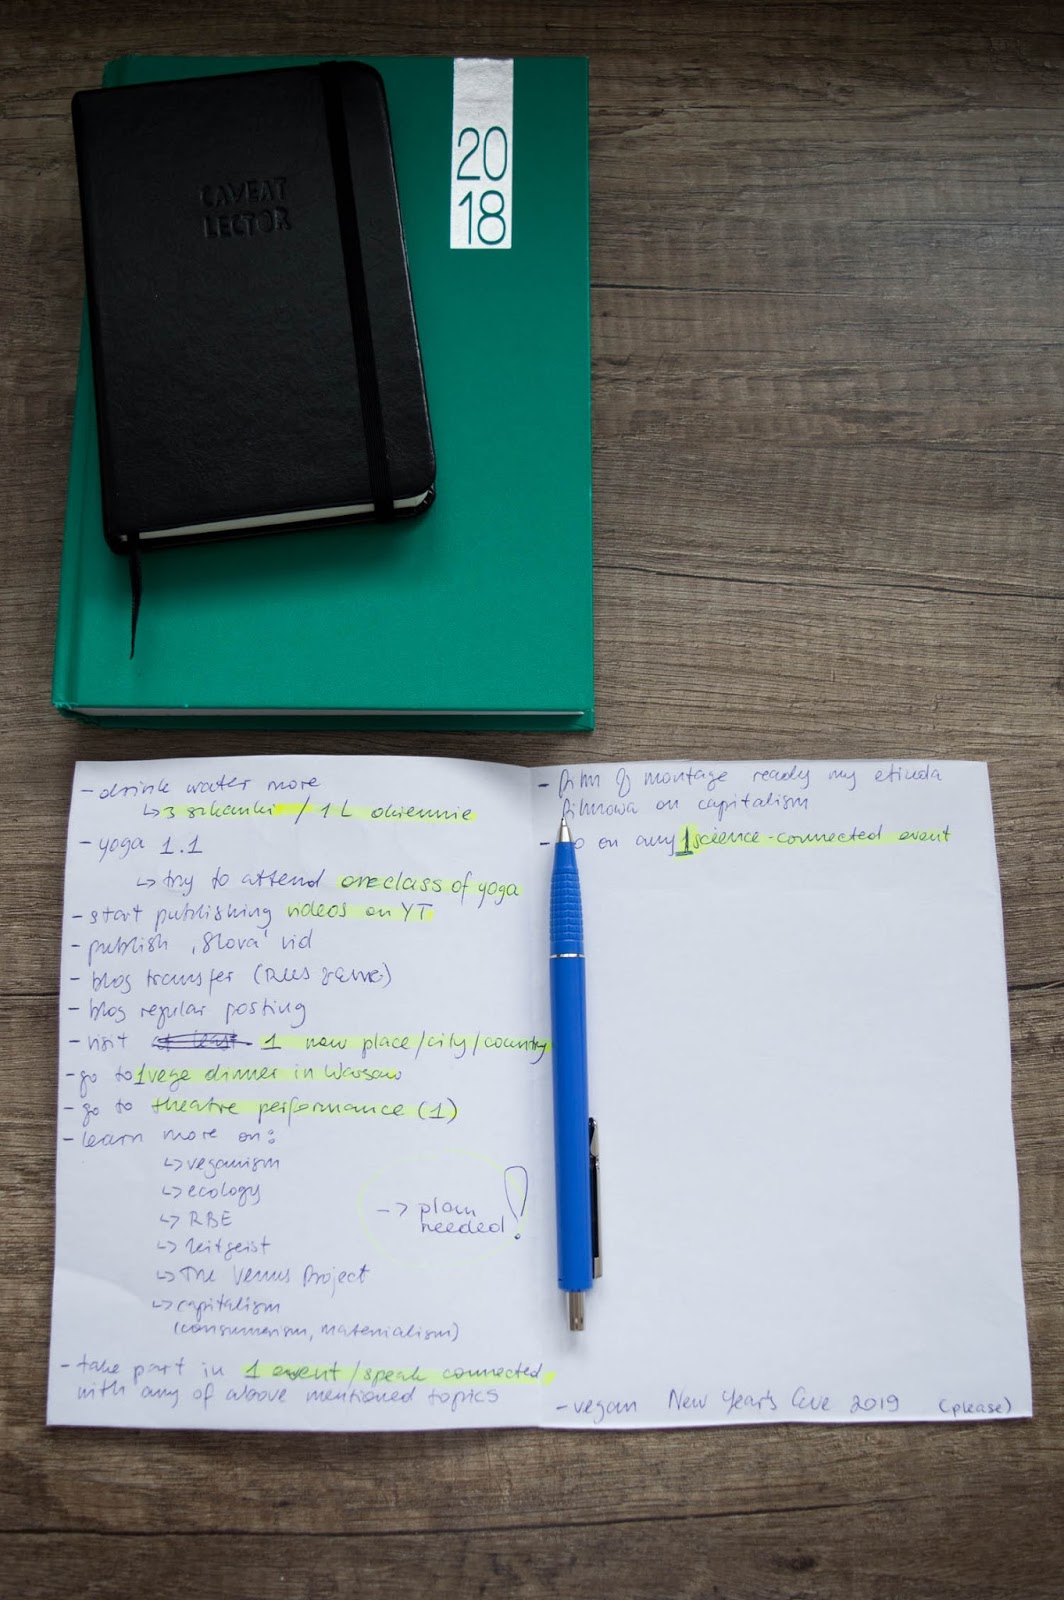 CAVEAT
LECTOR
20
18
- drink water more
↳ 3 szkanki / 1 L dziennie
- yoga 1.1
↳ try to attend one class of yoga
- start publishing videos on YT
- publish 'Slova' vid
- blog transfer (RUS
- blog regular posting
- visit at least 1 new place/city/country
- go to 1 vege dinner in Warsaw
- go to theatre performance (1)
- learn more on:
↳ veganism
↳ ecology
↳ RBE
↳ zeitgeist
↳ The Venus Project
↳ capitalism
(consumerism, materialism)
-> plan
needed!
- take part in 1 event/speak connected
with any of above mentioned topics
- film & montage ready my etiuda
filmowa on capitalism
- on any 1 science-connected event
- vegan New Year's Eve 2019 (please)